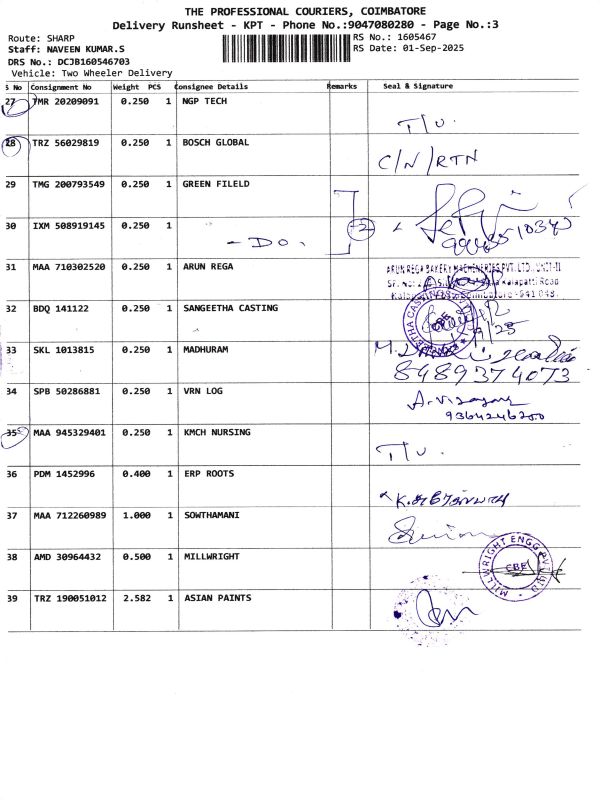 THE PROFESSIONAL COURIERS, COIMBATORE
Delivery Runsheet - KPT - Phone No.:9047080280 - Page No.:3
Route: SHARP
RS No.: 1605467
Staff: NAVEEN KUMAR.S
RS Date: 01-Sep-2025
DRS No.: DCJB160546703
Vehicle: Two Wheeler Delivery
S No Consignment No Weight PCS Consignee Details Remarks Seal & Signature
27 TMR 20209091 0.250 1 NGP TECH
T/U.
28 TRZ 56029819 0.250 1 BOSCH GLOBAL
C/N/RTN
29 TMG 200793549 0.250 1 GREEN FILELD
30 IXM 508919145 0.250 1
- Do. 2
31 MAA 710302520 0.250 1 ARUN REGA
ARUN REGA BAKERY MACHENERIES PVT. LTD., UNIT-II
Kalapatti Road
Coimbatore-641 048.
32 BDQ 141122 0.250 1 SANGEETHA CASTING
CBE
33 SKL 1013815 0.250 1 MADHURAM
8489374073
34 SPB 50286881 0.250 1 VRN LOG
9364246200
35 MAA 945329401 0.250 1 KMCH NURSING
T/U.
36 PDM 1452996 0.400 1 ERP ROOTS
37 MAA 712260989 1.000 1 SOWTHAMANI
38 AMD 30964432 0.500 1 MILLWRIGHT
MILLWRIGHT ENGG PVT LTD
CBE
39 TRZ 190051012 2.582 1 ASIAN PAINTS